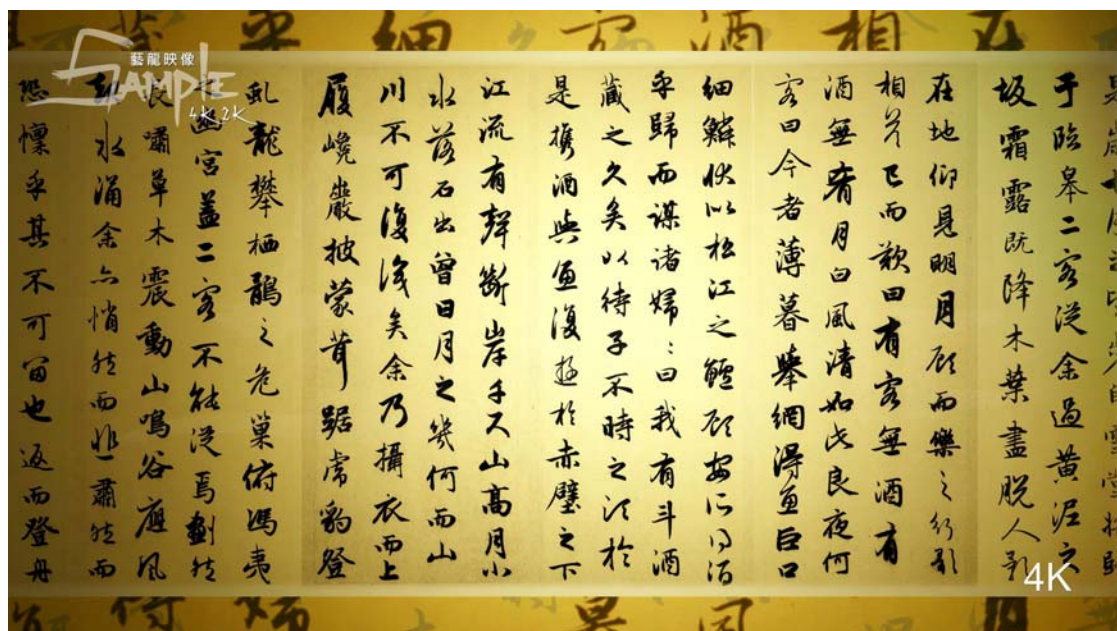 于臨皋二客從余過黃泥之
坂霜露既降木葉盡脫人影
在地仰見明月顧而樂之行歌
相答已而歎曰有客無酒有
酒無肴月白風清如此良夜何
客曰今者薄暮舉網得魚巨口
細鱗狀似松江之鱸顧安所得酒
乎歸而謀諸婦:曰我有斗酒
藏之久矣以待子不時之須於
是携酒與魚復遊於赤壁之下
江流有聲斷岸千尺山高月小
水落石出曾日月之幾何而山
川不可復識矣余乃攝衣而上
履巉巖披蒙茸踞虎豹登
虬龍攀栖鶻之危巢俯馮夷
之幽宮蓋二客不能從焉劃然
長嘯草木震動山鳴谷應風
起水涌余亦悄然而悲肅然而
恐懍乎其不可留也返而登舟
藝龍映像
SAMPLE
4K 2K
4K